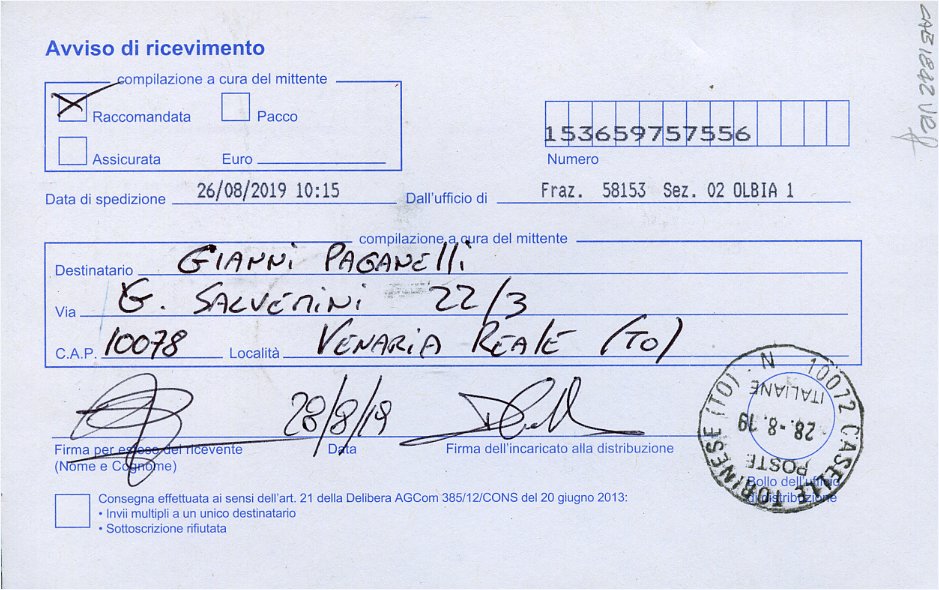 Avviso di ricevimento
compilazione a cura del mittente
Raccomandata Pacco
Assicurata Euro
153659757556
Numero
Data di spedizione 26/08/2019 10:15 Dall'ufficio di Fraz. 58153 Sez. 02 OLBIA 1
compilazione a cura del mittente
Destinatario GIANNI PAGANELLI
Via G. SALVEMINI 22/3
C.A.P. 10078 Località VENARIA REALE (TO)
28/8/19
Firma per esteso del ricevente Data Firma dell'incaricato alla distribuzione
(Nome e Cognome)
Bollo dell'ufficio
di distribuzione
10072 CASELLE TORINESE (TO) · N
POSTE
28.-8.19
ITALIANE
Consegna effettuata ai sensi dell'art. 21 della Delibera AGCom 385/12/CONS del 20 giugno 2013:
• Invii multipli a un unico destinatario
• Sottoscrizione rifiutata